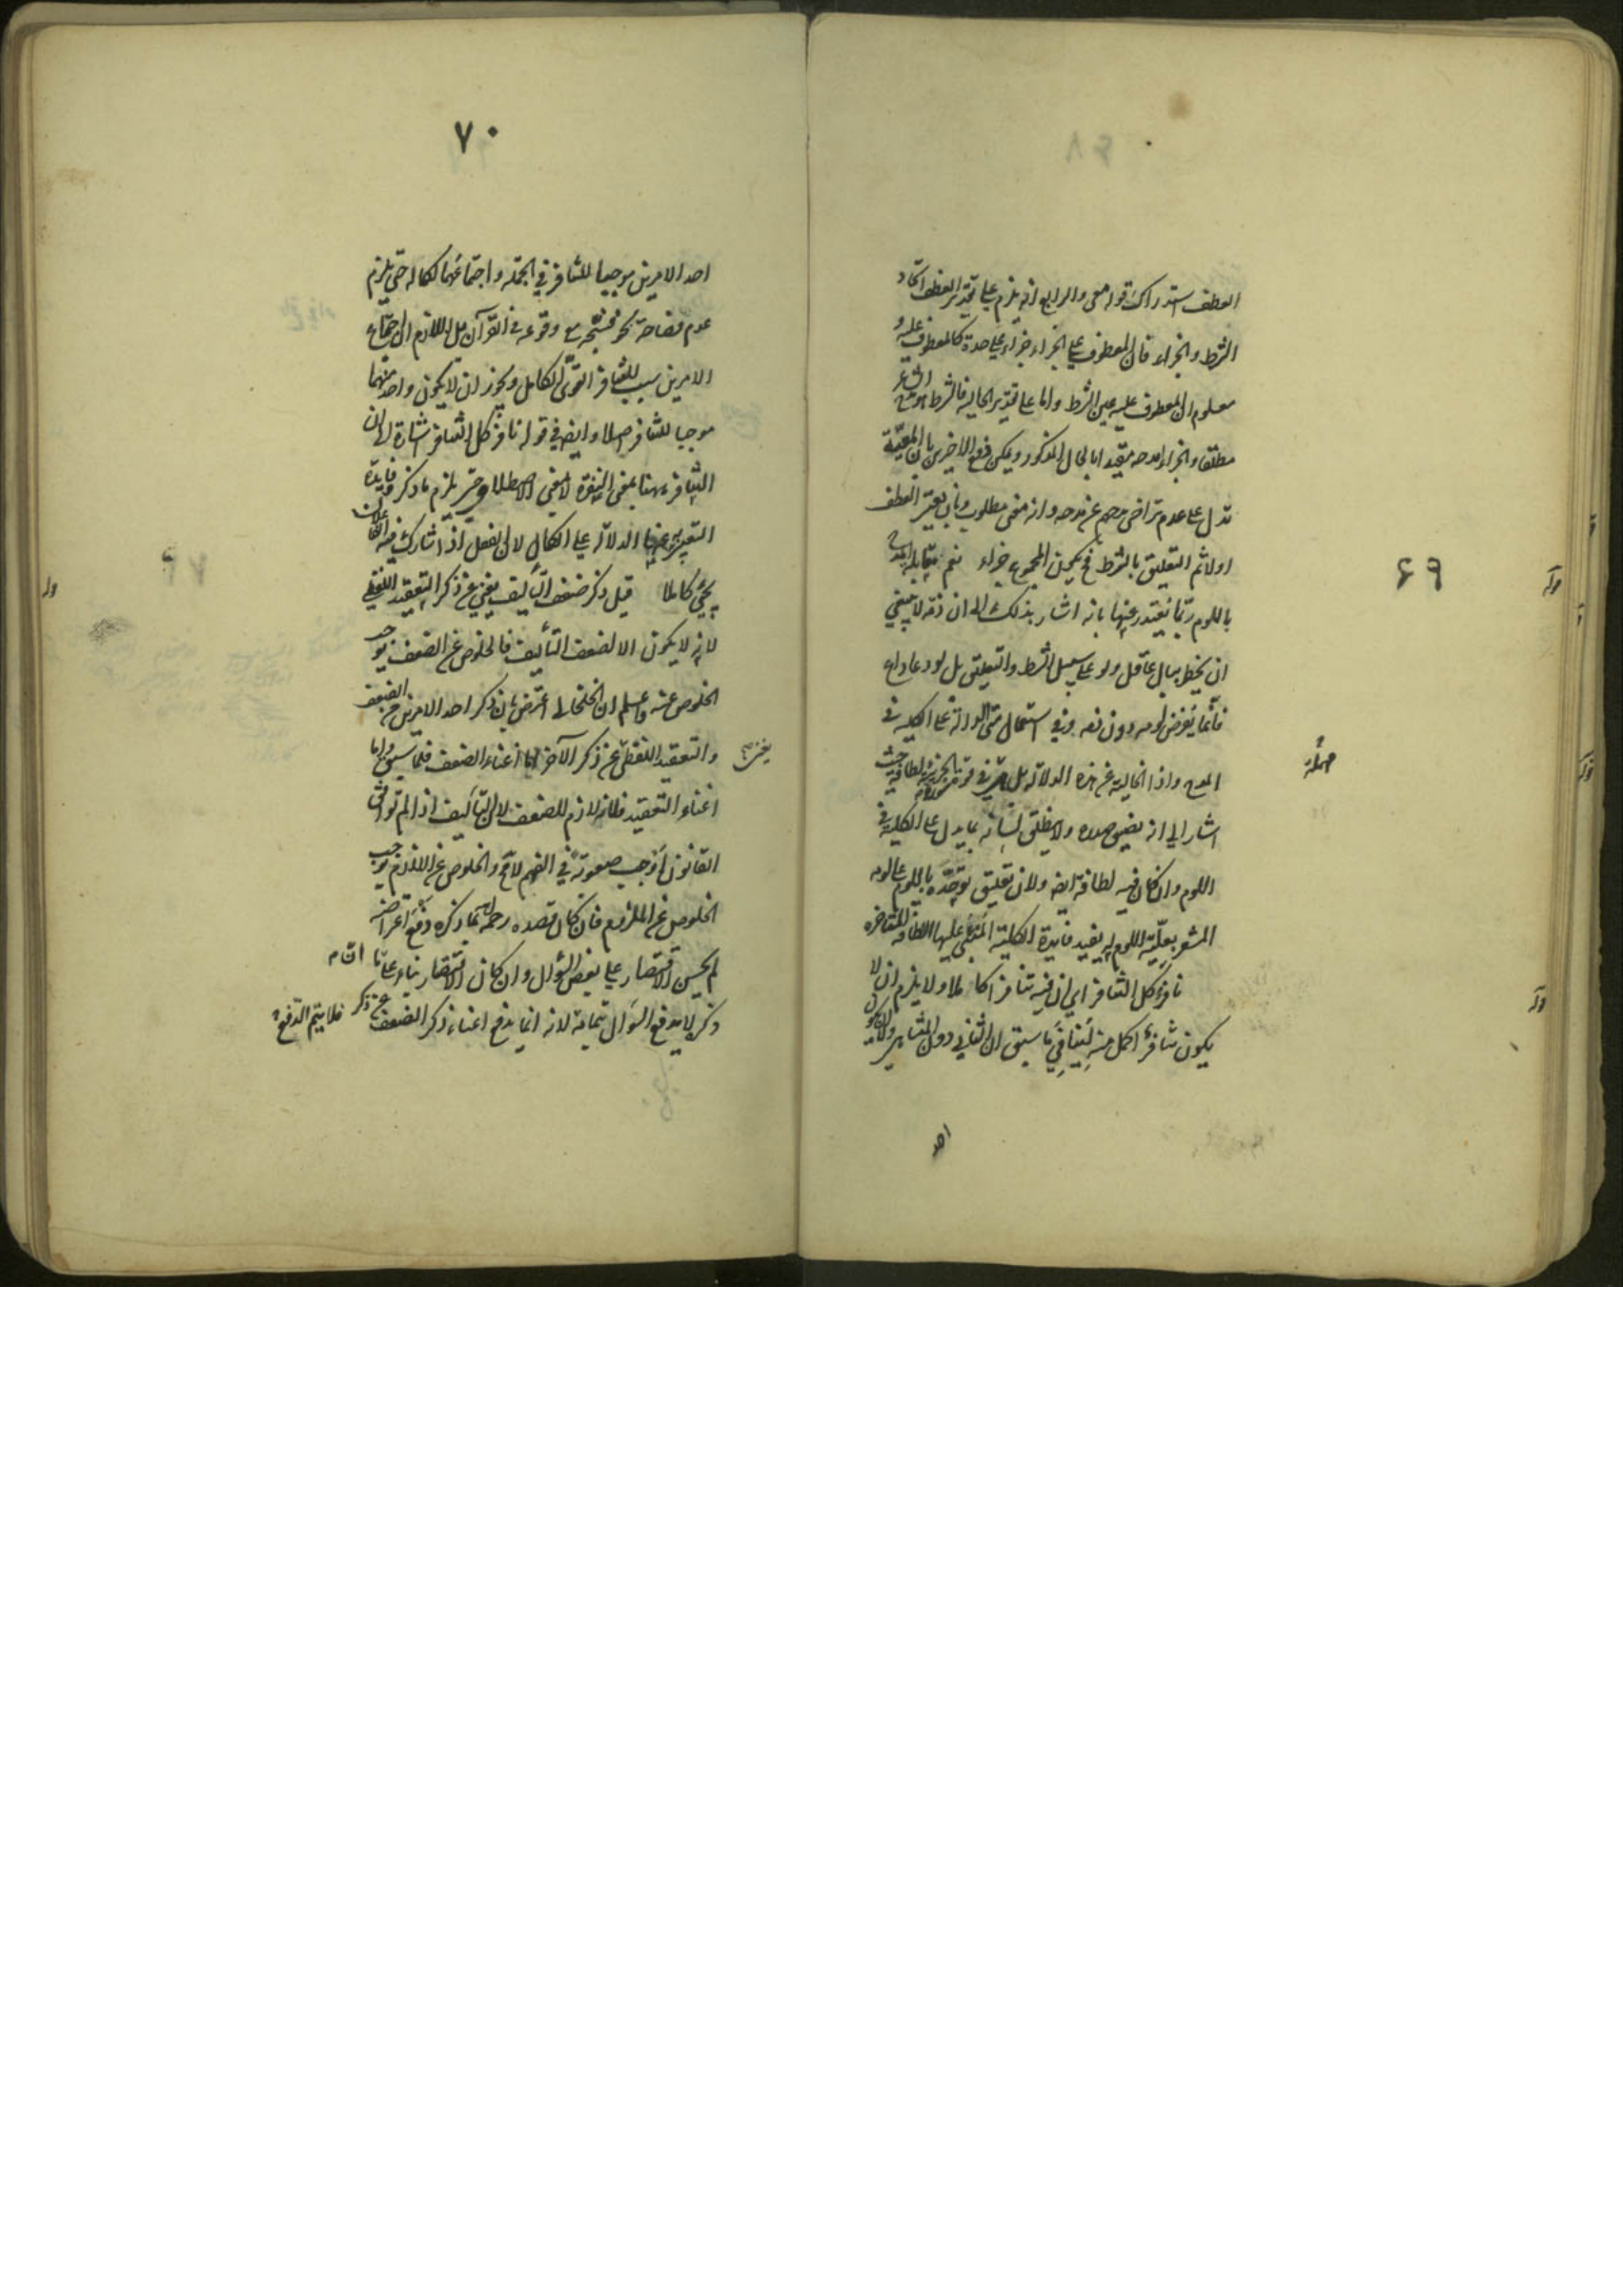 ٦٩
العطف استدراك قوله معى والرابع انه يلزم على تقدير العطف اتحاد
الشرط والجزاء فان المعطوف على الجزاء جزاء على حدة كالمعطوف عليه و
معلوم ان المعطوف عليه عين الشرط واما على تقدير الحالية فالشرط هو مدح الشاعر
مطلقا والجزاء مدحه مقيدا بالحال المذكور ويمكن دفع الاخيرين بان المعية
تدل على عدم تراخى مدحهم عن مدحه وانه معنى مطلوب وبان يعتبر العطف
اولا ثم التعليق بالشرط فح يكون المجموع جزاء نعم مقابلة المدح
باللوم ربما يعتذر عنها بانه اشار بذلك الى ان ذمه لا ينبغي
ان يخطر ببال عاقل ولو على سبيل الشرط والتعليق بل لو دعا داع
فانما يفرض لومه دون ذمه وفى استعمال متى الدالة على الكلية فى
المدح واذا الخالية عن هذه الدلالة بل هى فى قوة الجزئية لطافة حيث
اشار الى انه يضيق صدره ولا ينطلق لسانه بما يدل على الكلية فى
اللوم وان كان فيه لطافة ايضا ولان تعليق توحده باللوم على لومه
المشعر بعلية اللوم له يفيد فائدة الكلية المبتنى عليها اللطافة المتاخرة
نافر كل التنافر اى ان فيه تنافرا كاملا ولا يلزم ان لا
يكون تنافر اكمل منه لينافى ما سبق ان الثانى دون المتناهى ولا ان يكون
احد
٧٠
احد الامرين موجبا للتنافر فى الجملة واجتماعهما لكماله حتى يلزم
عدم فصاحة نحو فسبحه مع وقوعه فى القرآن بل اللازم ان اجتماع
الامرين سبب للتنافر القوى الكامل ويجوز ان لا يكون واحد منهما
موجبا للتنافر اصلا وايضا فى قوله نافر كل التنافر اشارة الى ان
التنافر ههنا بمعنى النفرة لا بمعنى الاصطلاحى حتى يلزم ما ذكر وفايدة
التعبير عنها الدلالة على الكمال لان الفعل اذا تشارك فيه الفاعلان
يجئ كاملا قيل ذكر ضعف التأليف يغنى عن ذكر التعقيد اللفظى
لانه لا يكون الا لضعف التأليف فالخلوص عن الضعف يوجب
الخلوص عنه واعلم ان الخلخالى اعترض بان ذكر احد الامرين من الضعف
والتعقيد اللفظى يغنى عن ذكر الآخر اما اغناء الضعف فلما سبق واما
اغناء التعقيد فلانه لازم للضعف لان التأليف اذا لم يوافق
القانون اوجب صعوبة فى الفهم لا مح والخلوص عن اللازم يوجب
الخلوص عن الملزوم فان كان قصده رحمه الله بما ذكره دفع اعتراضه
لم يحسن الاقتصار على بعض السؤال وان كان الاقتصار بناء على ان ما
ذكر لا يدفع السؤال بتمامه لانه انما يدفع اغناء ذكر الضعف عن ذكر فلا يتم الدفع